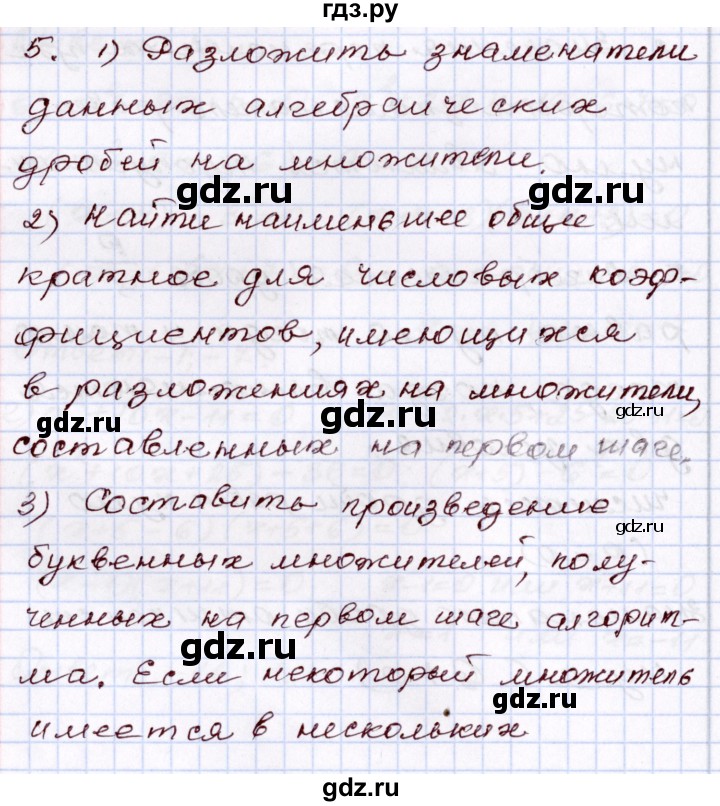 гдз.ру
5. 1) Разложить знаменатели
данных алгебраических
дробей на множители.
gdz.ru
gdz.ru
2) Найти наименьшее общее
кратное для числовых коэф-
фициентов, имеющихся
в разложениях на множители,
gdz.ru
gdz.ru
составленных на первом шаге.
3) Составить произведение
gdz.ru
буквенных множителей, полу-
ченных на первом шаге алгорит-
gdz.ru
ма. Если некоторый множитель
gdz.ru
имеется в нескольких
gdz.ru